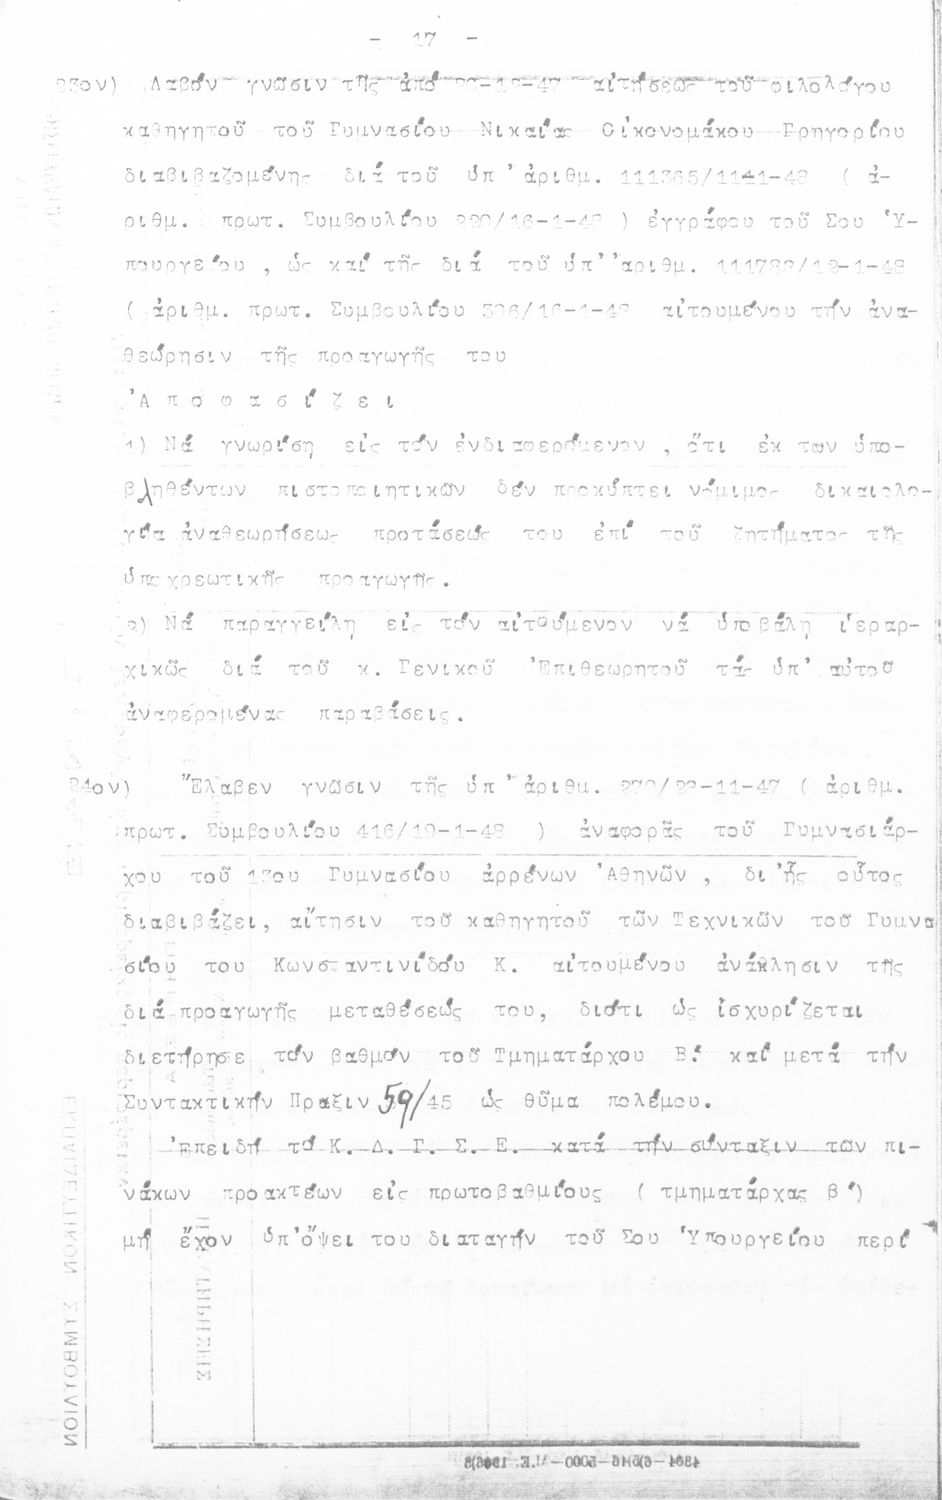 - 17 -
23ον) Λαβόν γνῶσιν τῆς ἀπό 22-12-47 αἰτήσεως τοῦ φιλολόγου
καθηγητοῦ τοῦ Γυμνασίου Νικαίας Οἰκονομάκου Γρηγορίου
διαβιβαζομένης διά τοῦ ὑπ' ἀριθμ. 111365/1141-48 ( ἀ-
ριθμ. πρωτ. Συμβουλίου /16-1-48 ) ἐγγράφου τοῦ Σου Ὑ-
πουργείου , ὡς καί τῆς διά τοῦ ὑπ' ἀριθμ. /12-1-48
( ἀριθμ. πρωτ. Συμβουλίου /16-1-48 αἰτουμένου τήν ἀνα-
θεώρησιν τῆς προαγωγῆς του
Ἀ π ο φ α σ ί ζ ε ι
1) Νά γνωρίση εἰς τόν ἐνδιαφερόμενον , ὅτι ἐκ των ὑπο-
βληθέντων πιστοποιητικῶν δέν προκύπτει νόμιμος δικαιολο-
γία ἀναθεωρήσεως προτάσεώς του ἐπί τοῦ ζητήματος τῆς
ὑποχρεωτικῆς προαγωγῆς.
2) Νά παραγγείλη εἰς τόν αἰτοῦμενον νά ὑποβάλη ἱεραρ-
χικῶς διά τοῦ κ. Γενικοῦ Ἐπιθεωρητοῦ τάς ὑπ' αὐτοῦ
ἀναφερομένας παραβάσεις.
24ον) Ἔλαβεν γνῶσιν τῆς ὑπ' ἀριθμ. /22-11-47 ( ἀριθμ.
πρωτ. Συμβουλίου 416/19-1-48 ) ἀναφορᾶς τοῦ Γυμνασιάρ-
χου τοῦ 13ου Γυμνασίου ἀρρένων Ἀθηνῶν , δι'ἧς οὗτος
διαβιβάζει, αἴτησιν τοῦ καθηγητοῦ τῶν Τεχνικῶν τοῦ Γυμνα
σίου του Κωνσταντινίδου Κ. αἰτουμένου ἀνάκλησιν τῆς
διά προαγωγῆς μεταθέσεώς του, διότι ὡς ἰσχυρίζεται
διετήρησε τόν βαθμόν τοῦ Τμηματάρχου Β.' καί μετά τήν
Συντακτικήν Πραξιν 59/45 ὡς θῦμα πολέμου.
Ἐπειδή τό Κ. Δ. Γ. Σ. Ε. κατά τήν σύνταξιν τῶν πι-
νάκων προακτέων εἰς πρωτοβαθμίους ( τμηματάρχας β')
μή ἔχον ὑπ'ὄψει του διαταγήν τοῦ Σου Ὑπουργείου περί
ΕΚΠΑΙΔΕΥΤΙΚΟΝ ΣΥΜΒΟΥΛΙΟΝ